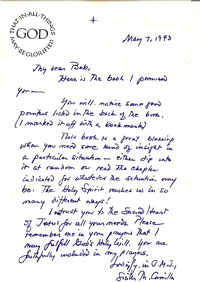 THAT·IN·ALL·THINGS
GOD
MAY·BE·GLORIFIED
+
May 7, 1993
My dear Bob,
Here is the book I promised
you—
You will notice some good
pointers listed in the back of the book.
I marked it off with a bookmark
This book is a great blessing
when you need some kind of insight in
a particular situation — either dip into
it at random or read the chapter
indicated for whatever the situation may
be. The Holy Spirit reaches us in so
many different ways!
I entrust you to the Sacred Heart
of Jesus for all your needs. Please
remember me in your prayers that I
may fulfill God's Holy Will. You are
faithfully included in my prayers.
in
Sister M. Camilla